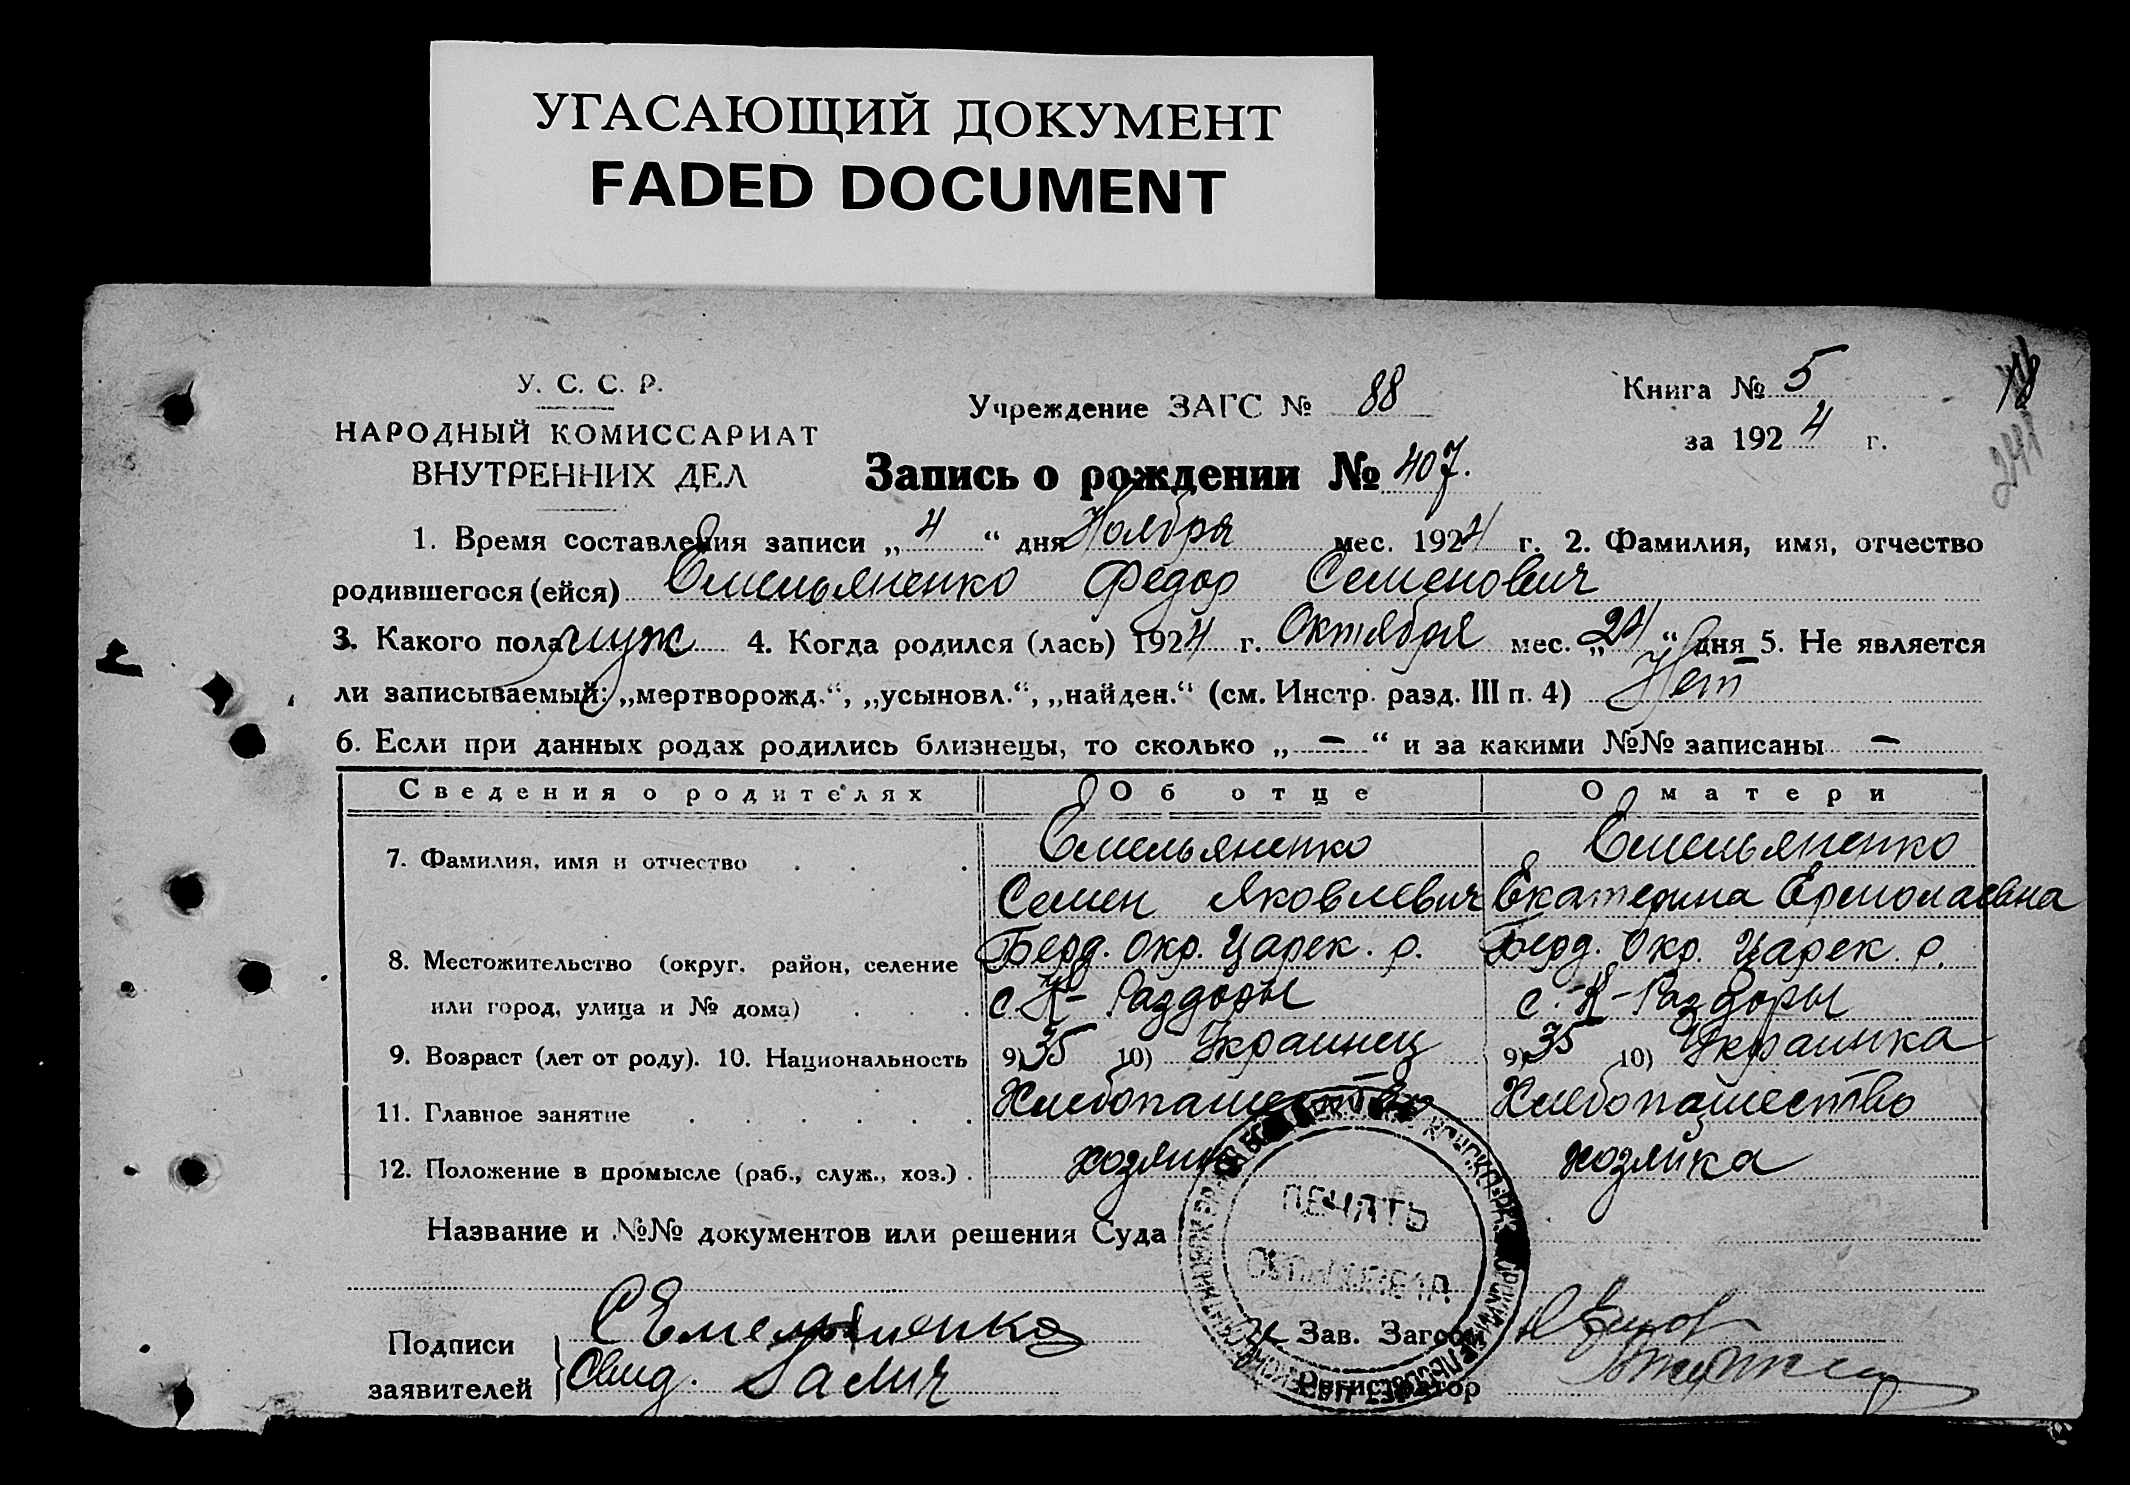 УГАСАЮЩИЙ ДОКУМЕНТ
FADED DOCUMENT
У. С. С. Р.
НАРОДНЫЙ КОМИССАРИАТ
ВНУТРЕННИХ ДЕЛ
Учреждение ЗАГС № 88
Книга № 5
за 1924 г.
Запись о рождении № 407.
1. Время составления записи „4“ дня Ноября мес. 1924 г. 2. Фамилия, имя, отчество
родившегося (ейся) Емельяненко Федор Семенович
3. Какого пола муж 4. Когда родился (лась) 1924 г. Октября мес. „24“ дня 5. Не является
ли записываемый: „мертворожд.“, „усыновл.“, „найден.“ (см. Инстр. разд. III п. 4) Нет
6. Если при данных родах родились близнецы, то сколько „—“ и за какими №№ записаны —
Сведения о родителях Об отце О матери
7. Фамилия, имя и отчество . . . Емельяненко Емельяненко
Семен Яковлевич Екатерина Ермолаевна
8. Местожительство (округ, район, селение Берд. Окр. Царек. р. Берд. Окр. Царек. р.
или город, улица и № дома) . . . с. К-Раздоры с. К-Раздоры
9. Возраст (лет от роду). 10. Национальность 9) 35 10) Украинец 9) 35 10) Украинка
11. Главное занятие . . . . . Хлебопашество Хлебопашество
12. Положение в промысле (раб., служ., хоз.) . хозяин хозяйка
Название и №№ документов или решения Суда
ПЕЧАТЬ
Подписи СЕмельяненко
Зав. Загсом
заявителей Свид. Галич
Регистратор